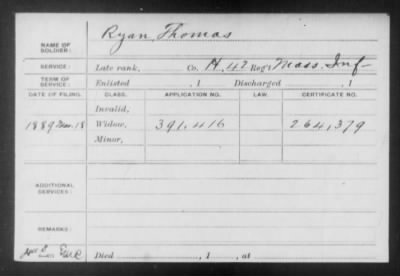 Ryan, Thomas
NAME OF
SOLDIER:
SERVICE: Late rank, Co. H, 42 Reg't Mass. Inf
TERM OF
SERVICE: Enlisted , 1 Discharged , 1
DATE OF FILING. CLASS. APPLICATION NO. LAW. CERTIFICATE NO.
Invalid,
1889 Mar. 18 Widow, 391,416 264,379
Minor,
ADDITIONAL
SERVICES:
REMARKS:
Died , 1 , at